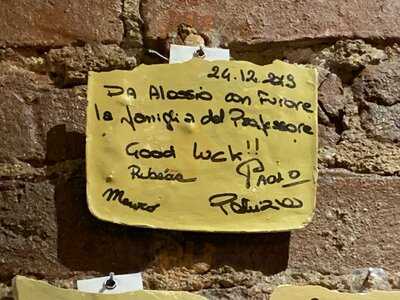 24.12.2019
DA Alessio con Furore
la famiglia del Professore
Good Luck!!
PAOLO
Mauro
PATRIZIO